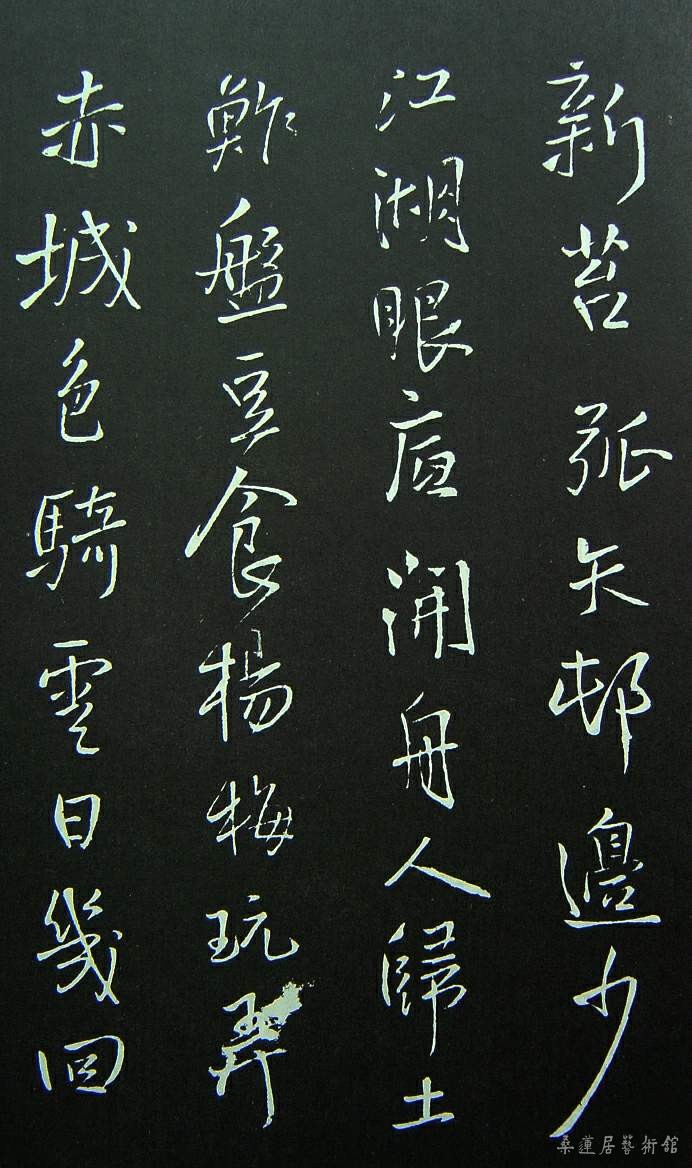 新苔弧矢邨邊少
江湖眼底開舟人歸土
鮓盤豆食楊梅玩弄
赤城色騎雲日幾回
桑蓮居藝術館